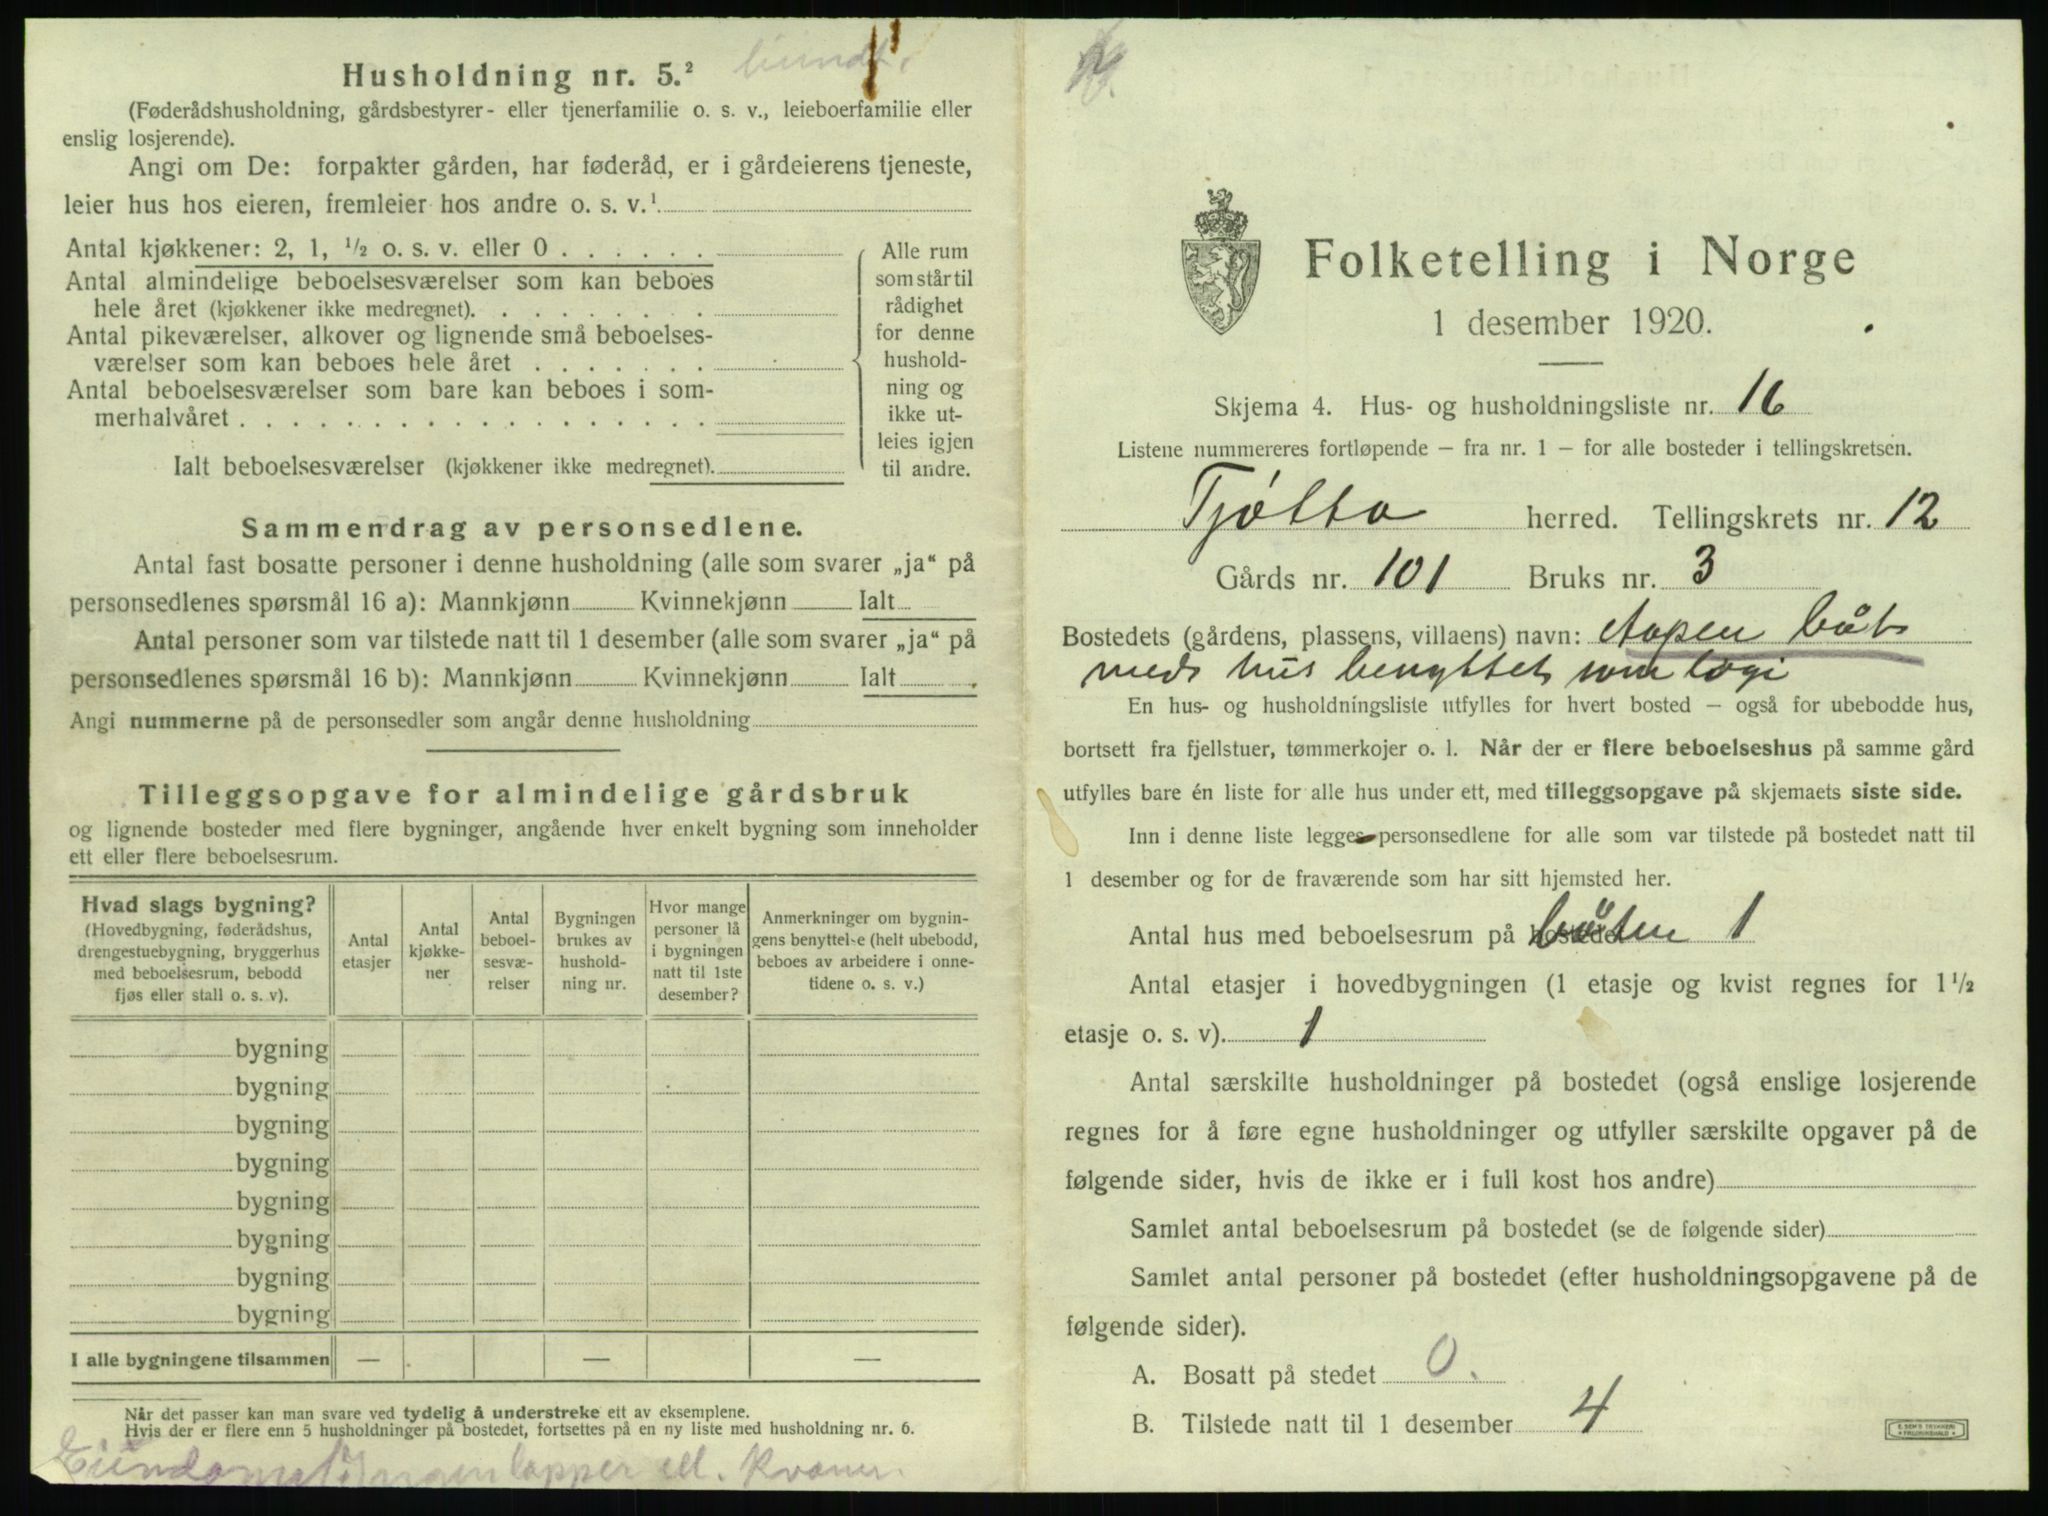 Husholdning nr. 5.²
(Føderådshusholdning, gårdsbestyrer- eller tjenerfamilie o. s. v., leieboerfamilie eller
enslig losjerende).
Angi om De: forpakter gården, har føderåd, er i gårdeierens tjeneste,
leier hus hos eieren, fremleier hos andre o. s. v.¹
Antal kjøkkener: 2, 1, ½ o. s. v. eller 0 . . . . . .
Antal almindelige beboelsesværelser som kan beboes
hele året (kjøkkener ikke medregnet). . . . . . . . .
Antal pikeværelser, alkover og lignende små beboelses-
værelser som kan beboes hele året . . . . . . .
Antal beboelsesværelser som bare kan beboes i som-
merhalvåret . . . . . . . . . . . . . . . . . .
Ialt beboelsesværelser (kjøkkener ikke medregnet).
Alle rum
som står til
rådighet
for denne
hushold-
ning og
ikke ut-
leies igjen
til andre.
Sammendrag av personsedlene.
Antal fast bosatte personer i denne husholdning (alle som svarer „ja“ på
personsedlenes spørsmål 16 a): Mannkjønn Kvinnekjønn Ialt
Antal personer som var tilstede natt til 1 desember (alle som svarer „ja“ på
personsedlenes spørsmål 16 b): Mannkjønn Kvinnekjønn Ialt
Angi nummerne på de personsedler som angår denne husholdning
Tilleggsopgave for almindelige gårdsbruk
og lignende bosteder med flere bygninger, angående hver enkelt bygning som inneholder
ett eller flere beboelsesrum.
Hvad slags bygning?
(Hovedbygning, føderådshus,
drengestuebygning, bryggerhus
med beboelsesrum, bebodd
fjøs eller stall o. s. v).
Antal
etasjer
Antal
kjøkke-
ner
Antal
beboel-
sesvæ-
relser
Bygningen
brukes av
hushold-
ning nr.
Hvor mange
personer lå
i bygningen
natt til 1ste
desember?
Anmerkninger om bygnin-
gens benyttelse (helt ubebodd,
beboes av arbeidere i onne-
tidene o. s. v.)
bygning
bygning
bygning
bygning
bygning
bygning
bygning
bygning
I alle bygningene tilsammen — — —
Når det passer kan man svare ved tydelig å understreke ett av eksemplene.
Hvis der er flere enn 5 husholdninger på bostedet, fortsettes på en ny liste med husholdning nr. 6.
Folketelling i Norge
1 desember 1920.
Skjema 4. Hus- og husholdningsliste nr. 16
Listene nummereres fortløpende – fra nr. 1 – for alle bosteder i tellingskretsen.
Tjøtta herred. Tellingskrets nr. 12
Gårds nr. 101 Bruks nr. 3
Bostedets (gårdens, plassens, villaens) navn: Aapen båt
med hus benyttet som logi
En hus- og husholdningsliste utfylles for hvert bosted – også for ubebodde hus,
bortsett fra fjellstuer, tømmerkojer o. l. Når der er flere beboelseshus på samme gård
utfylles bare én liste for alle hus under ett, med tilleggsopgave på skjemaets siste side.
Inn i denne liste legges personsedlene for alle som var tilstede på bostedet natt til
1 desember og for de fraværende som har sitt hjemsted her.
Antal hus med beboelsesrum på båten 1
Antal etasjer i hovedbygningen (1 etasje og kvist regnes for 1½
etasje o. s. v). 1
Antal særskilte husholdninger på bostedet (også enslige losjerende
regnes for å føre egne husholdninger og utfyller særskilte opgaver på de
følgende sider, hvis de ikke er i full kost hos andre)
Samlet antal beboelsesrum på bostedet (se de følgende sider)
Samlet antal personer på bostedet (efter husholdningsopgavene på de
følgende sider).
A. Bosatt på stedet 0.
B. Tilstede natt til 1 desember 4